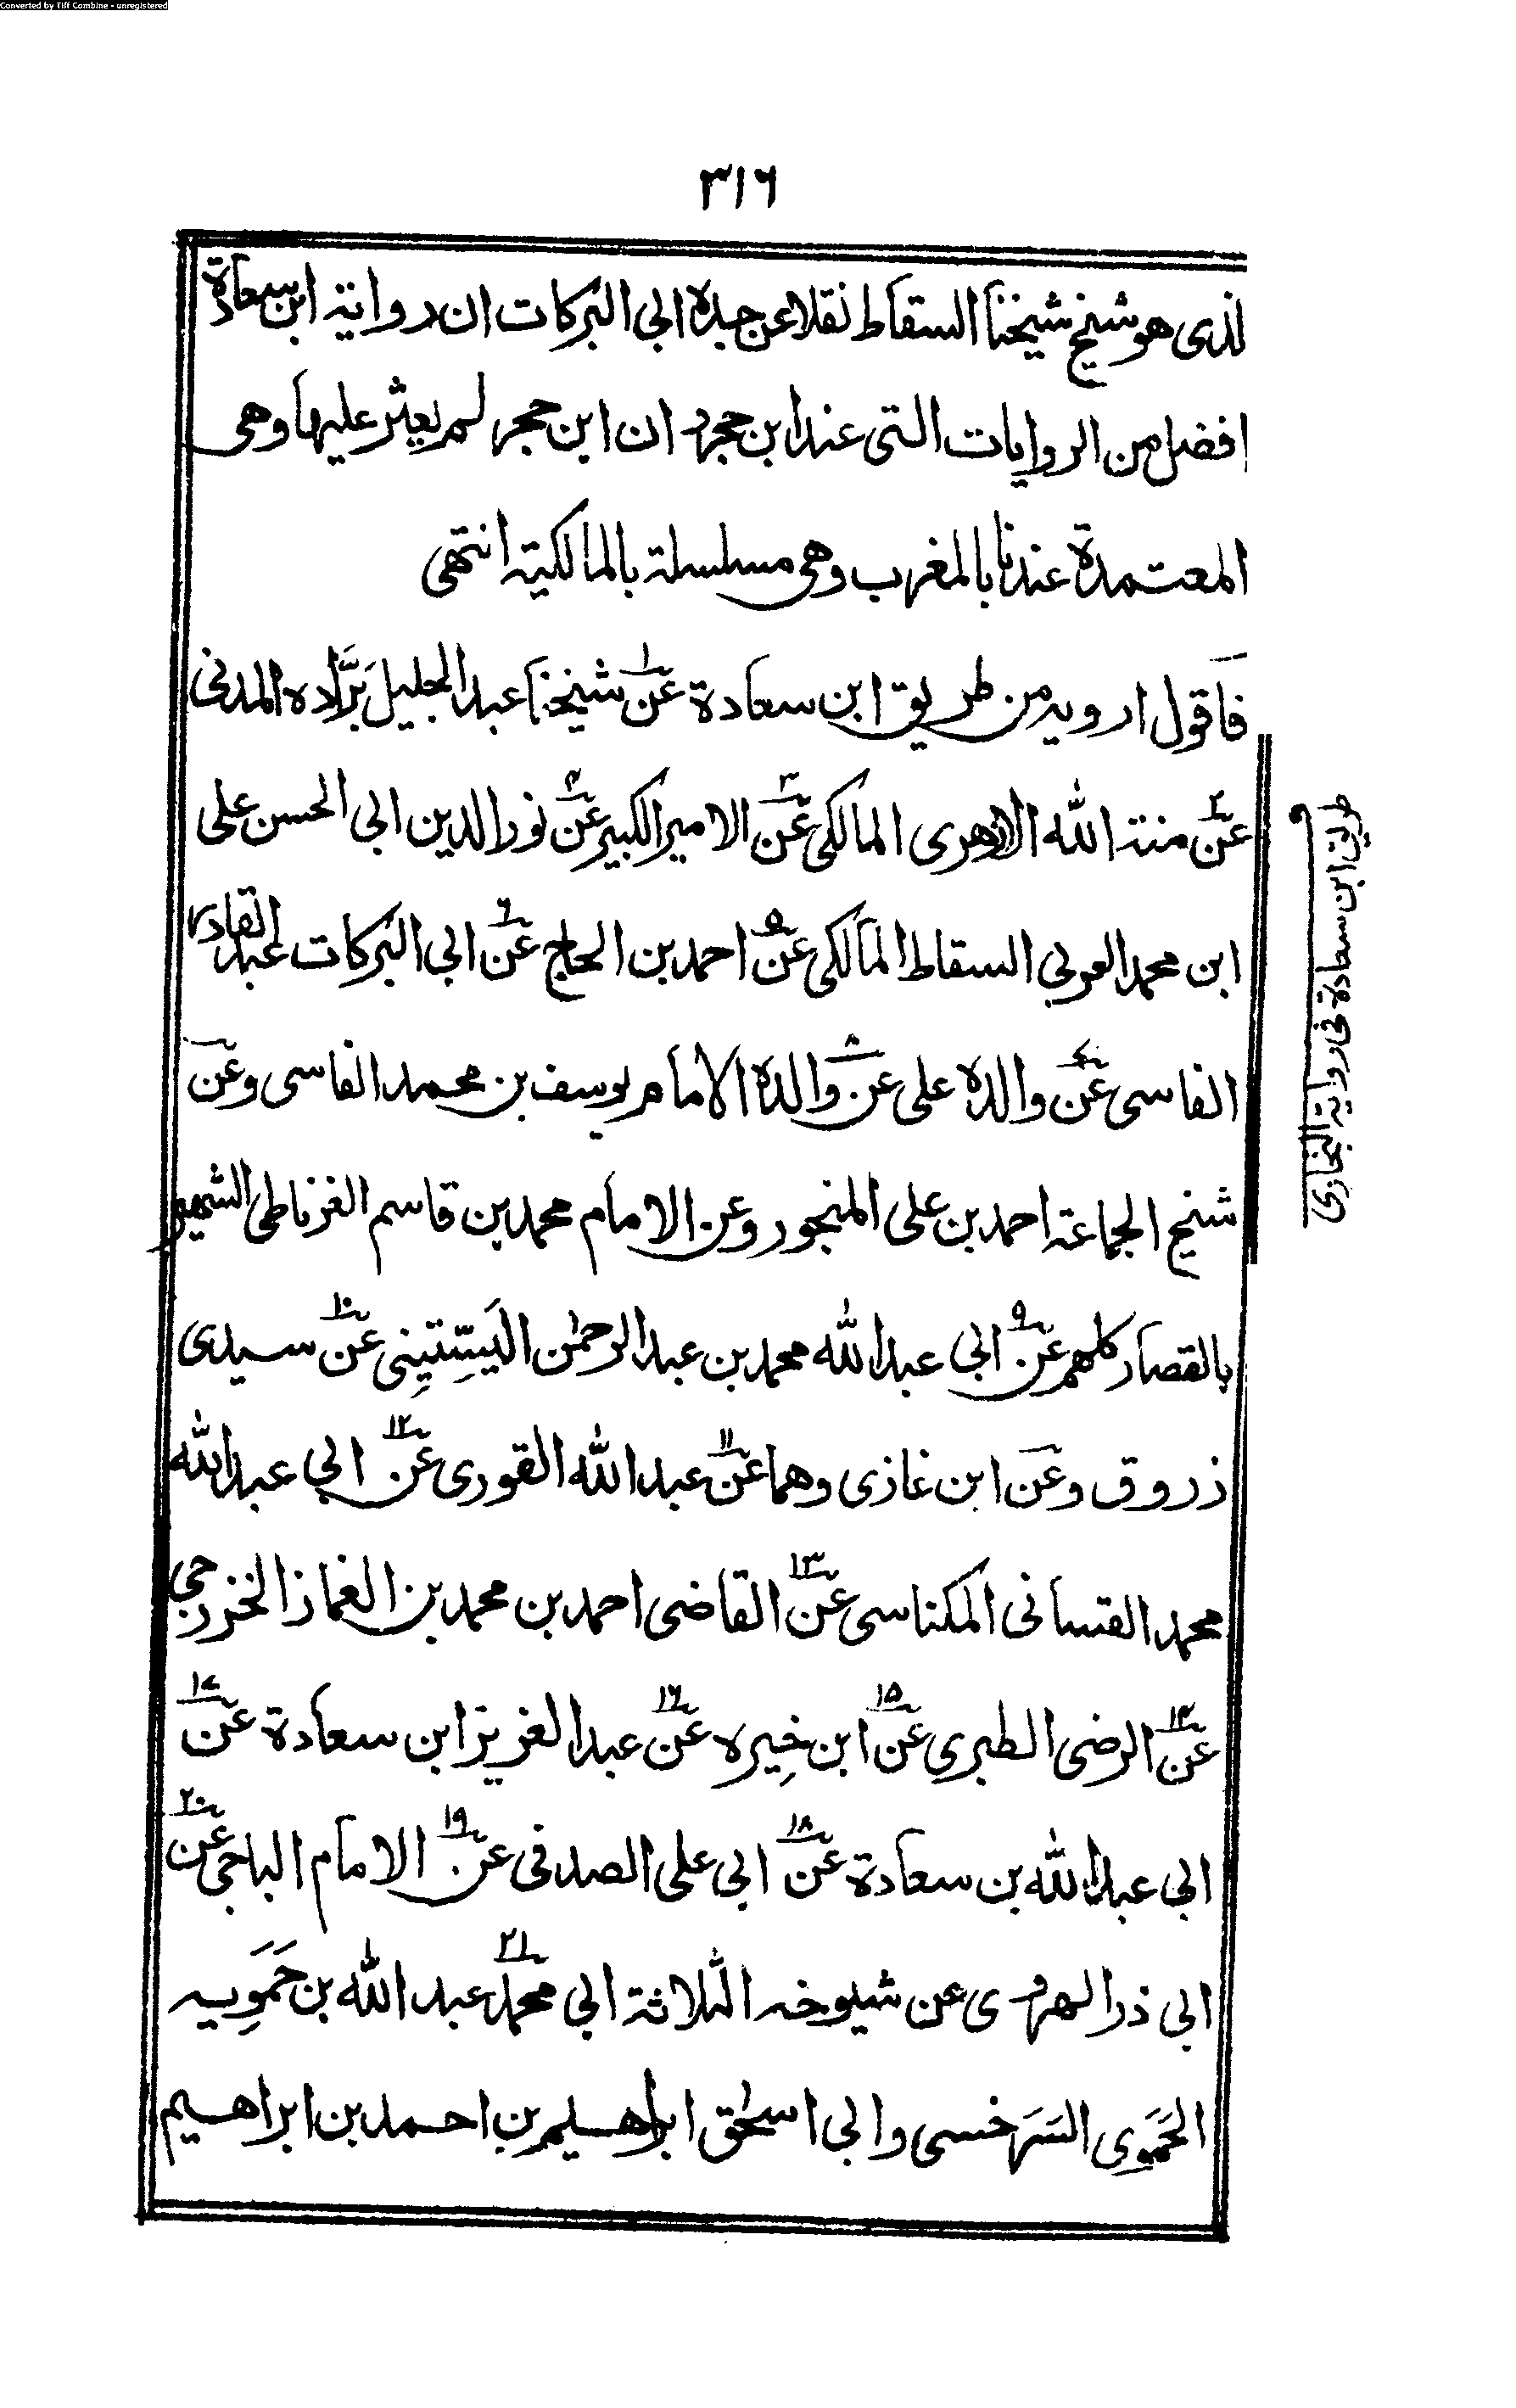 Converted by Tiff Combine - unregistered
٣١٦
لذى هو شيخ شيخنا السقاط نقلا عن جده ابي البركات ان رواية ابن سعادة
افضل من الروايات التى عند ابن حجر وان ابن حجر لم يعثر عليها وهى
المعتمدة عندنا بالمغرب وهى مسلسلة بالمالكية انتهى
فاقول ارويه من طريق ابن سعادة عن١ شيخنا عبد الجليل بَرَّاده المدنى
عن٢ منة الله الازهرى المالكى عن٣ الامير الكبير عن٤ نور الدين ابي الحسن على
ابن محمد العربي السقاط المالكى عن٥ احمد بن الحاج عن٦ ابي البركات عبد القادر
الفاسى عن٧ والده على عن٨ والده الامام يوسف بن محمد الفاسى وعن
شيخ الجماعة احمد بن على المنجور وعن الامام محمد بن قاسم الغرناطى الشهير
بالقصار كلهم عن٩ ابي عبد الله محمد بن عبد الرحمٰن اليَسِّتِينِى عن١٠ سيدى
زروق وعن ابن غازى وهما عن١١ عبد الله القورى عن١٢ ابي عبد الله
محمد الغسانى المكناسى عن١٣ القاضى احمد بن محمد بن الغماز الخزرجي
عن١٤ الرضى الطبرى عن١٥ ابن خِيره عن١٦ عبد العزيز ابن سعادة عن١٧
ابي عبد الله بن سعادة عن١٨ ابي على الصدفى عن١٩ الامام الباجي عن٢٠
ابي ذر الهروى عن شيوخه الثلاثة ابي محمد٢١ عبد الله بن حَمَّوِيه
الحَمَوِى السَرَخسى وابي اسحٰق ابراهيم بن احمد بن ابراهيم
طريق ابن سعادة فى رواية البخارى